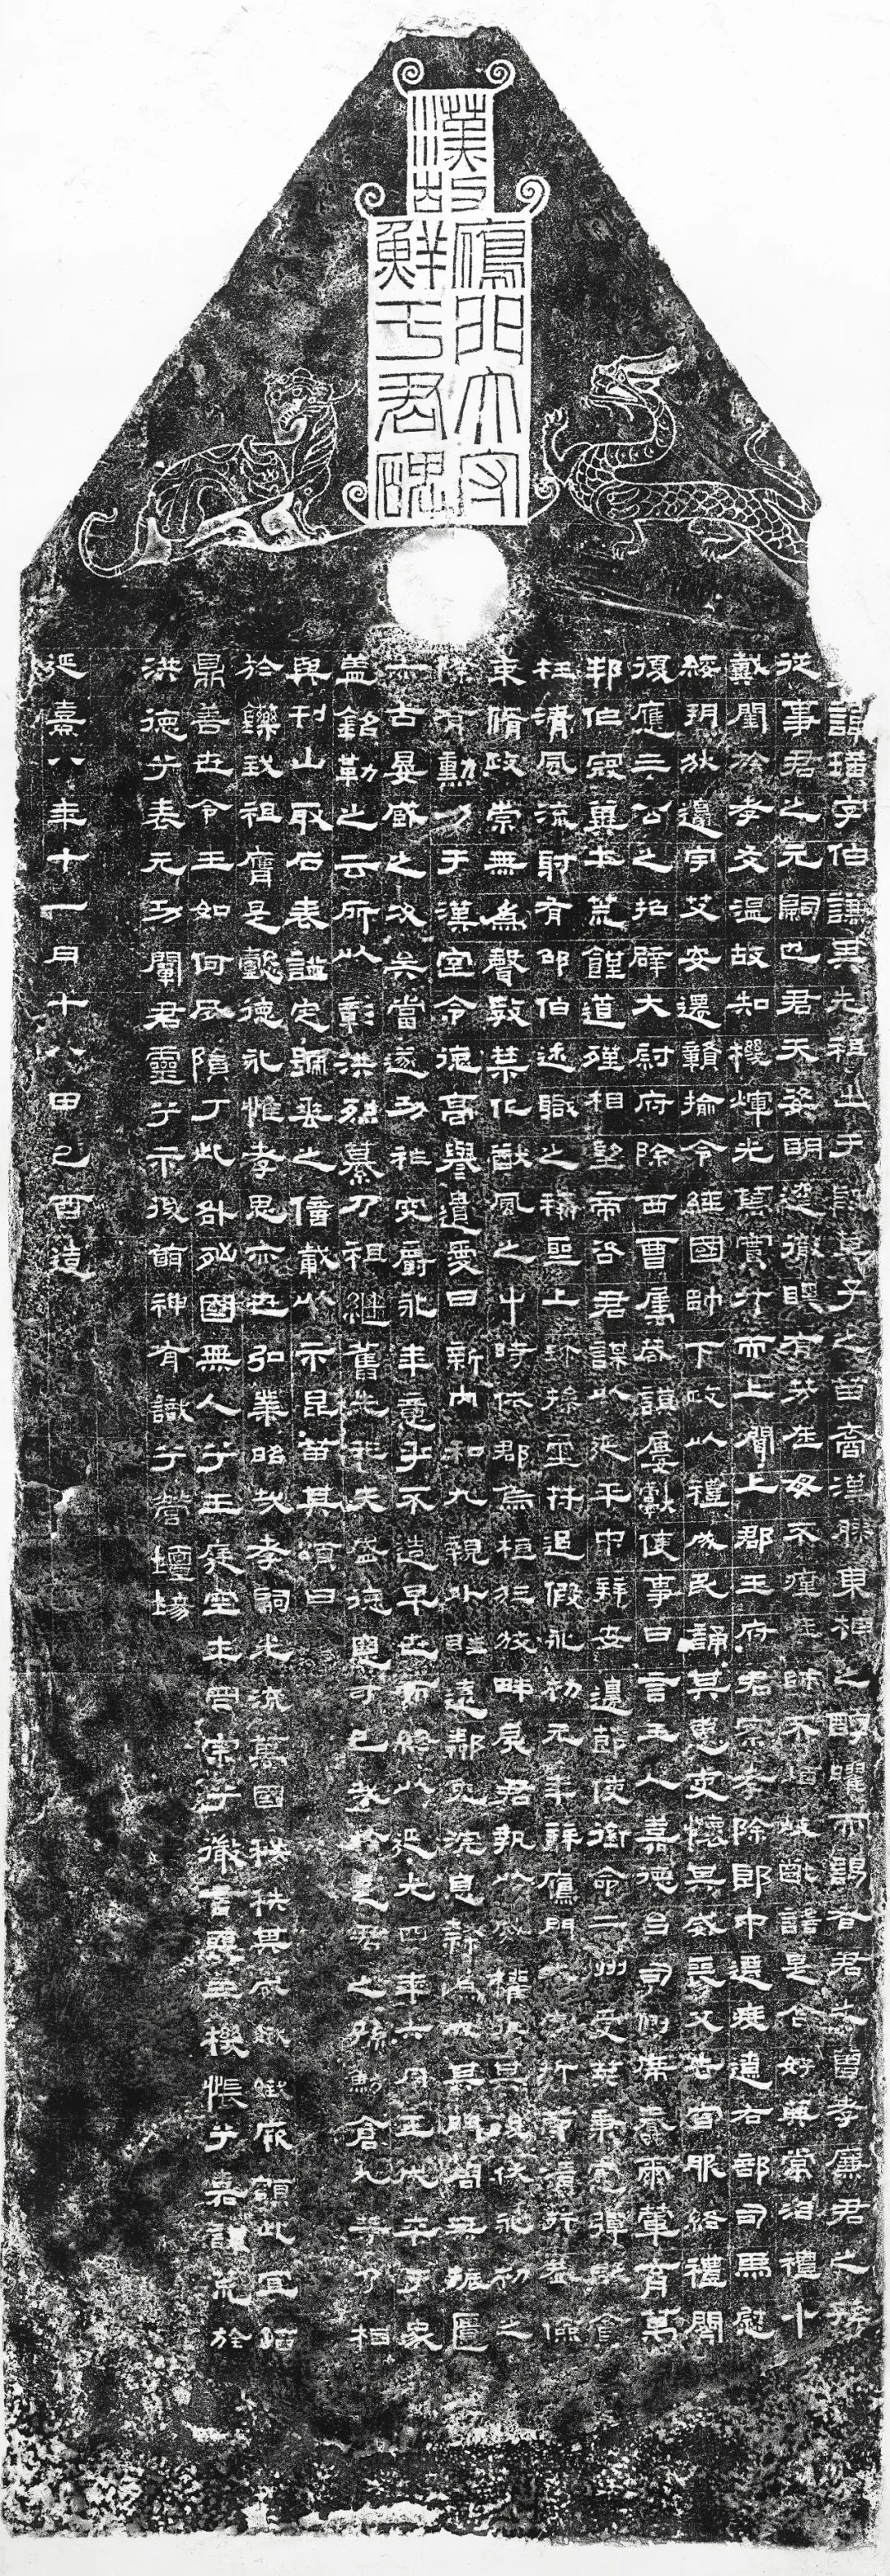 漢故
鴈門太守
鮮于君碑
諱璜字伯謙其先祖出于殷箕子之苗裔漢膠東相之醇曜而謁者君之曾孝廉君之孫
從事君之元嗣也君天姿明達徹瞑有芬在母不瘞在師不煩岐嶷謠是含好典常治禮小
戴閨族孝友溫故知機煇光篤實升而上聞上郡王府君察孝除郎中遷度遼右部司馬慰
綏朔狄邊宇艾安遷贛揄令經國帥下政以禮成民誦其惠吏懷其威喪父去官服終禮闋
復應三公之招辟大尉府除西曹屬昏謨屢獻使事日言王人慕德台司側席雨輩育萬
邦伯寇冀州荒饉道殣相望帝咨君謀以延平中拜安邊節使銜命二州受筴秉憲彈貶貪
枉清風流射有邵伯述職之稱聖上珍操璽符追假永初元年拜鴈門太守折節清行恭儉
束脩政崇無為聲教禁化猷風之中時依郡烏桓狂狡畔戾君執以威權征其後伏永初之
際有勳力于漢室令德高譽遺愛日新内和九親外睦遠鄰兗浼息隸為成其門閭共賑匱
亦古晏臧之次矣當遂功祀究爵永年意乎不造早世而終以延光四年六月壬戌卒于家
蓋銘勒之云所以彰洪烈纂乃祖繼舊先非夫盛德惡可已哉於是君之孫魴倉九等乃相
與刊山取石表謚定號垂之億載以示昆苗其頌曰
於鑠我祖膺是懿德永惟孝思亦世弘業昭哉孝嗣光流萬國秩秩其威娥娥厥頌此宜蹈
鼎善世令王如何夙隕丁此咎殃國無人兮王庭空士罔宗兮徽言喪王機悵兮嘉謀荒旌
洪德兮表元功闡君靈兮示後萌神有識兮營壇場
延熹八年十一月十八日己酉造